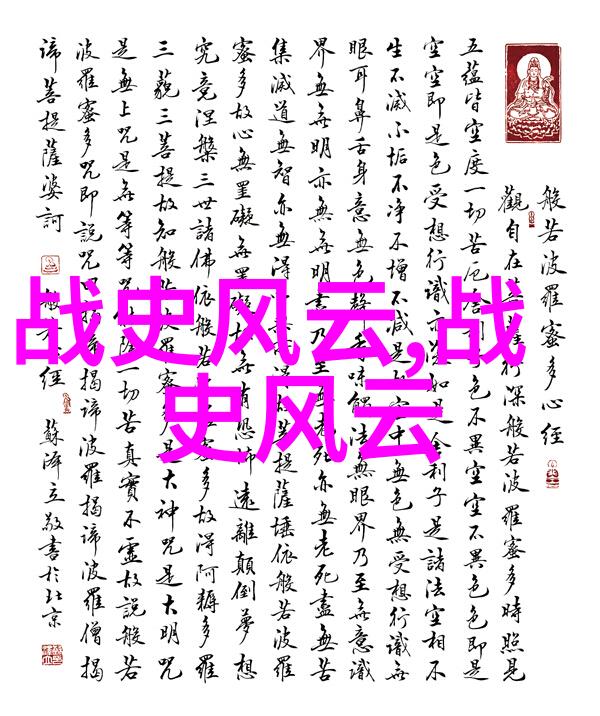 般若波羅蜜多心經
觀自在菩薩行深般若波羅蜜多時照見
五蘊皆空度一切苦厄舍利子色不異空空不異色色即是
空空即是色受想行識亦如是舍利子是諸法空相不
生不滅不垢不净不增不減是故空中無色無受想行識無
眼耳鼻舌身意無色聲香味觸法無眼界乃至無意識
界無無明亦無無明盡乃至無老死亦無老死盡無苦
集滅道無智亦無得以無所得故菩提薩埵依般若波羅
蜜多故心無罣礙無罣礙故無有恐怖遠離顛倒夢想
究竟涅槃三世諸佛依般若波羅蜜多故得阿耨多羅
三藐三菩提故知般若波羅蜜多是大神咒是大明咒
是無上咒是無等等咒能除一切苦真實不虛故說般若
波羅蜜多咒即說咒曰揭諦揭諦波羅揭諦波羅僧揭
諦菩提薩婆訶
般若心經
蘇澤立敬書於北京
战史风云,战
史风云